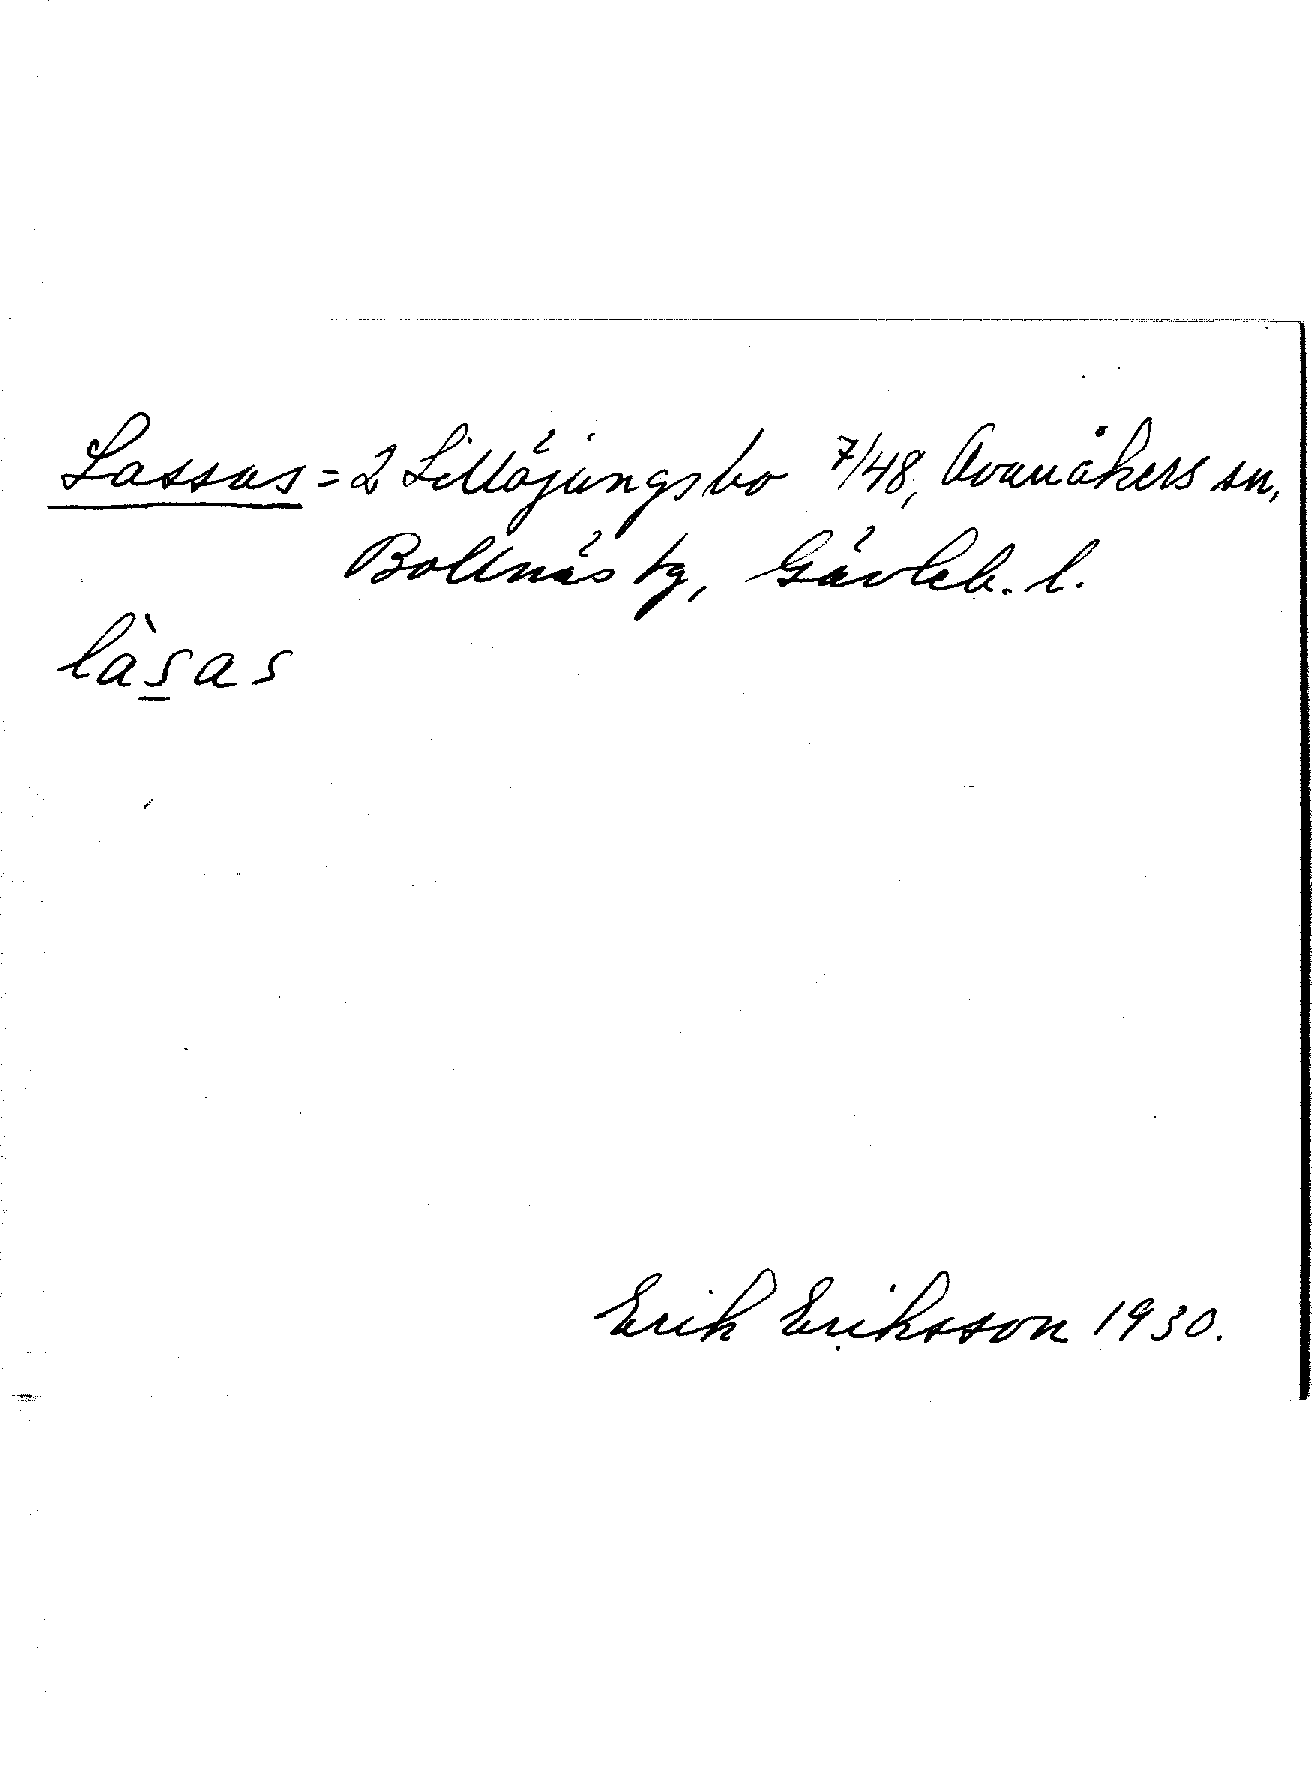 Lassas = 2 Lillöjungsbo 7/48, Ovanåkers sn,
Bollnäs tg, Gävleb. l.
làs̲as
Erik Eriksson 1930.